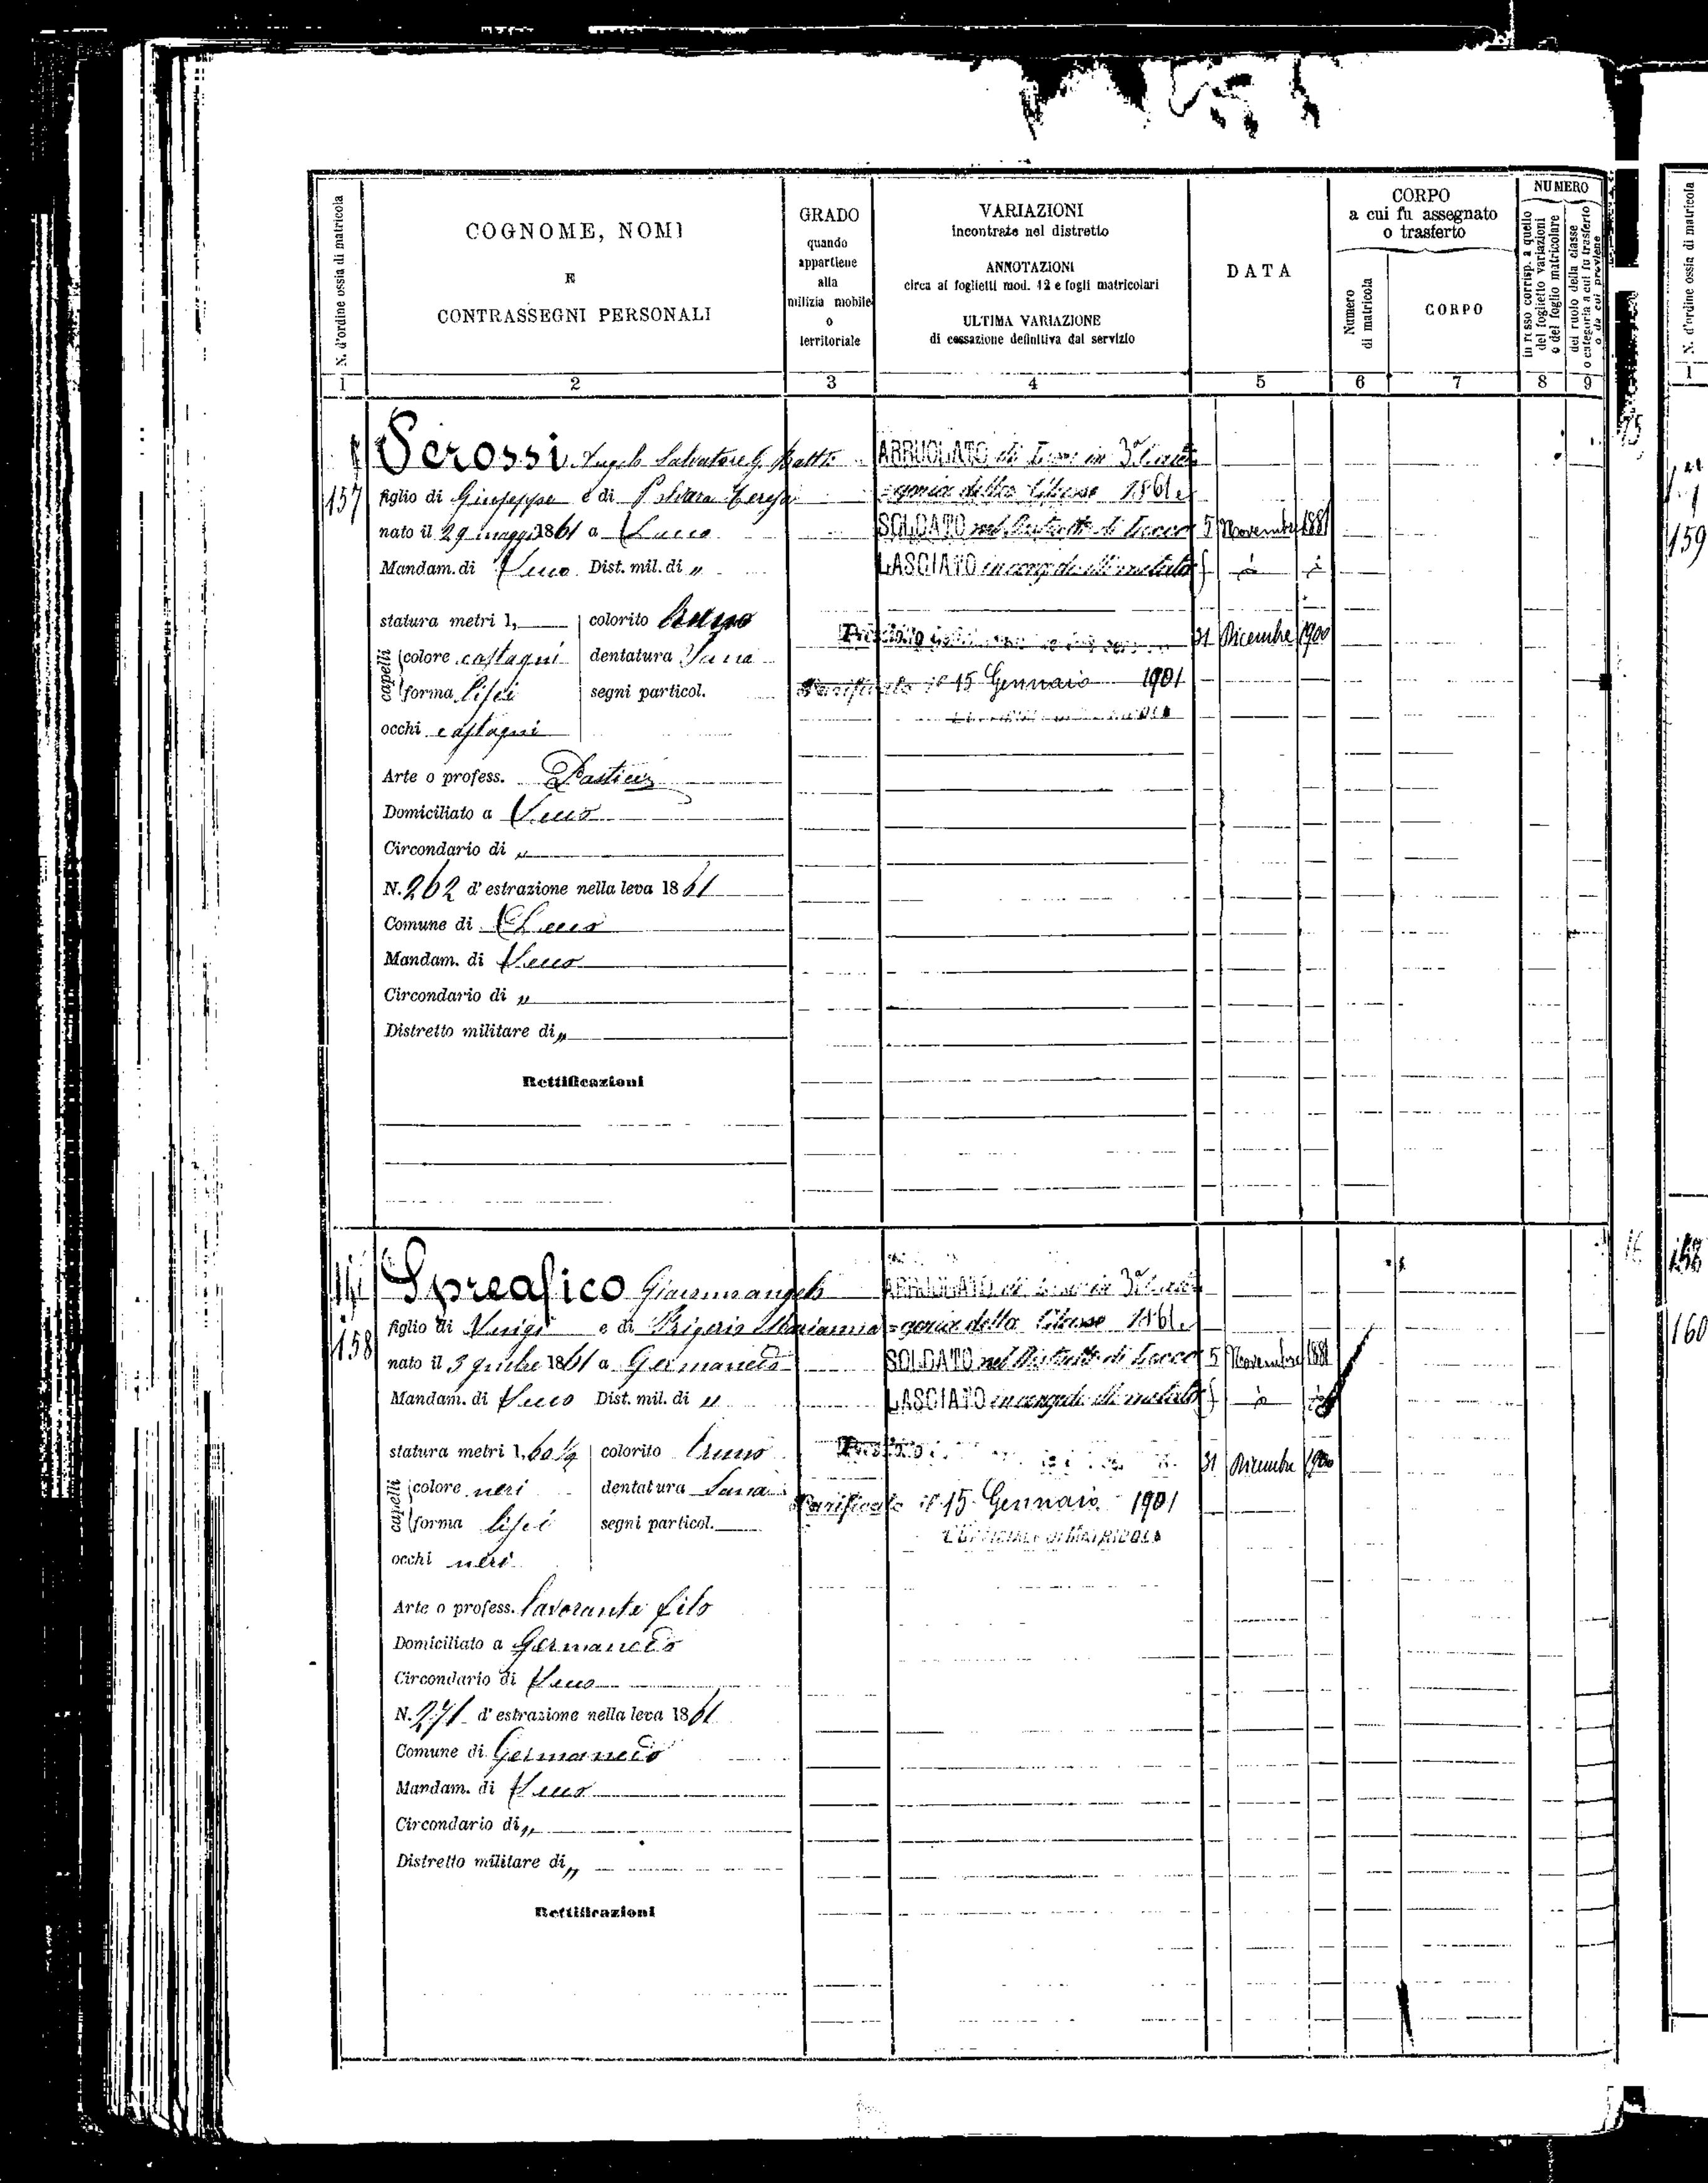 N. d'ordine ossia di matricola
COGNOME, NOMI
E
CONTRASSEGNI PERSONALI
GRADO
quando
appartiene
alla
milizia mobile
o
territoriale
VARIAZIONI
incontrate nel distretto
ANNOTAZIONI
circa ai foglietti mod. 12 e fogli matricolari
ULTIMA VARIAZIONE
di cessazione definitiva dal servizio
DATA
CORPO
a cui fu assegnato
o trasferto
Numero
di matricola
CORPO
NUMERO
in rosso corrisp. a quello
del foglietto variazioni
o del foglio matricolare
del ruolo della classe
o categoria a cui fu trasferto
o da cui proviene
1 2 3 4 5 6 7 8 9
157
Serossi Angelo Salvatore G. Batta
figlio di Giuseppe e di Polvara Teresa
nato il 29 maggio 1861 a Lecco
Mandam. di Lecco Dist. mil. di "
statura metri 1, colorito bruno
capelli colore castagni dentatura Sana
forma lisci segni particol.
occhi castagni
Arte o profess.
Domiciliato a Lecco
Circondario di "
N. 262 d'estrazione nella leva 1861
Comune di Lecco
Mandam. di Lecco
Circondario di "
Distretto militare di "
Rettificazioni
ARRUOLATO di Leva in 3ª Cate
=goria della Classe 1861 e
SOLDATO nel Distretto di Lecco 5 Novembre 1881
LASCIATO in congedo illimitato
31 Dicembre 1900
Parificato il 15 Gennaio 1901
158
Spreafico Giacomo angelo
figlio di Luigi e di Brigerio Marianna
nato il 3 1861 a Germanedo
Mandam. di Lecco Dist. mil. di "
statura metri 1,60 1/2 colorito bruno
capelli colore neri dentatura Sana
forma lisci segni particol.
occhi neri
Arte o profess. lavorante filo
Domiciliato a Germanedo
Circondario di Lecco
N. 271 d'estrazione nella leva 1861
Comune di Germanedo
Mandam. di Lecco
Circondario di "
Distretto militare di "
Rettificazioni
ARRUOLATO di Leva in 3ª Cate
=goria della Classe 1861 e
SOLDATO nel Distretto di Lecco 5 Novembre 1881
LASCIATO in congedo illimitato
31 Dicembre 1900
Parificato il 15 Gennaio 1901
L'UFFICIALE DI MATRICOLA
N. d'ordine ossia di matricola
1
159
160